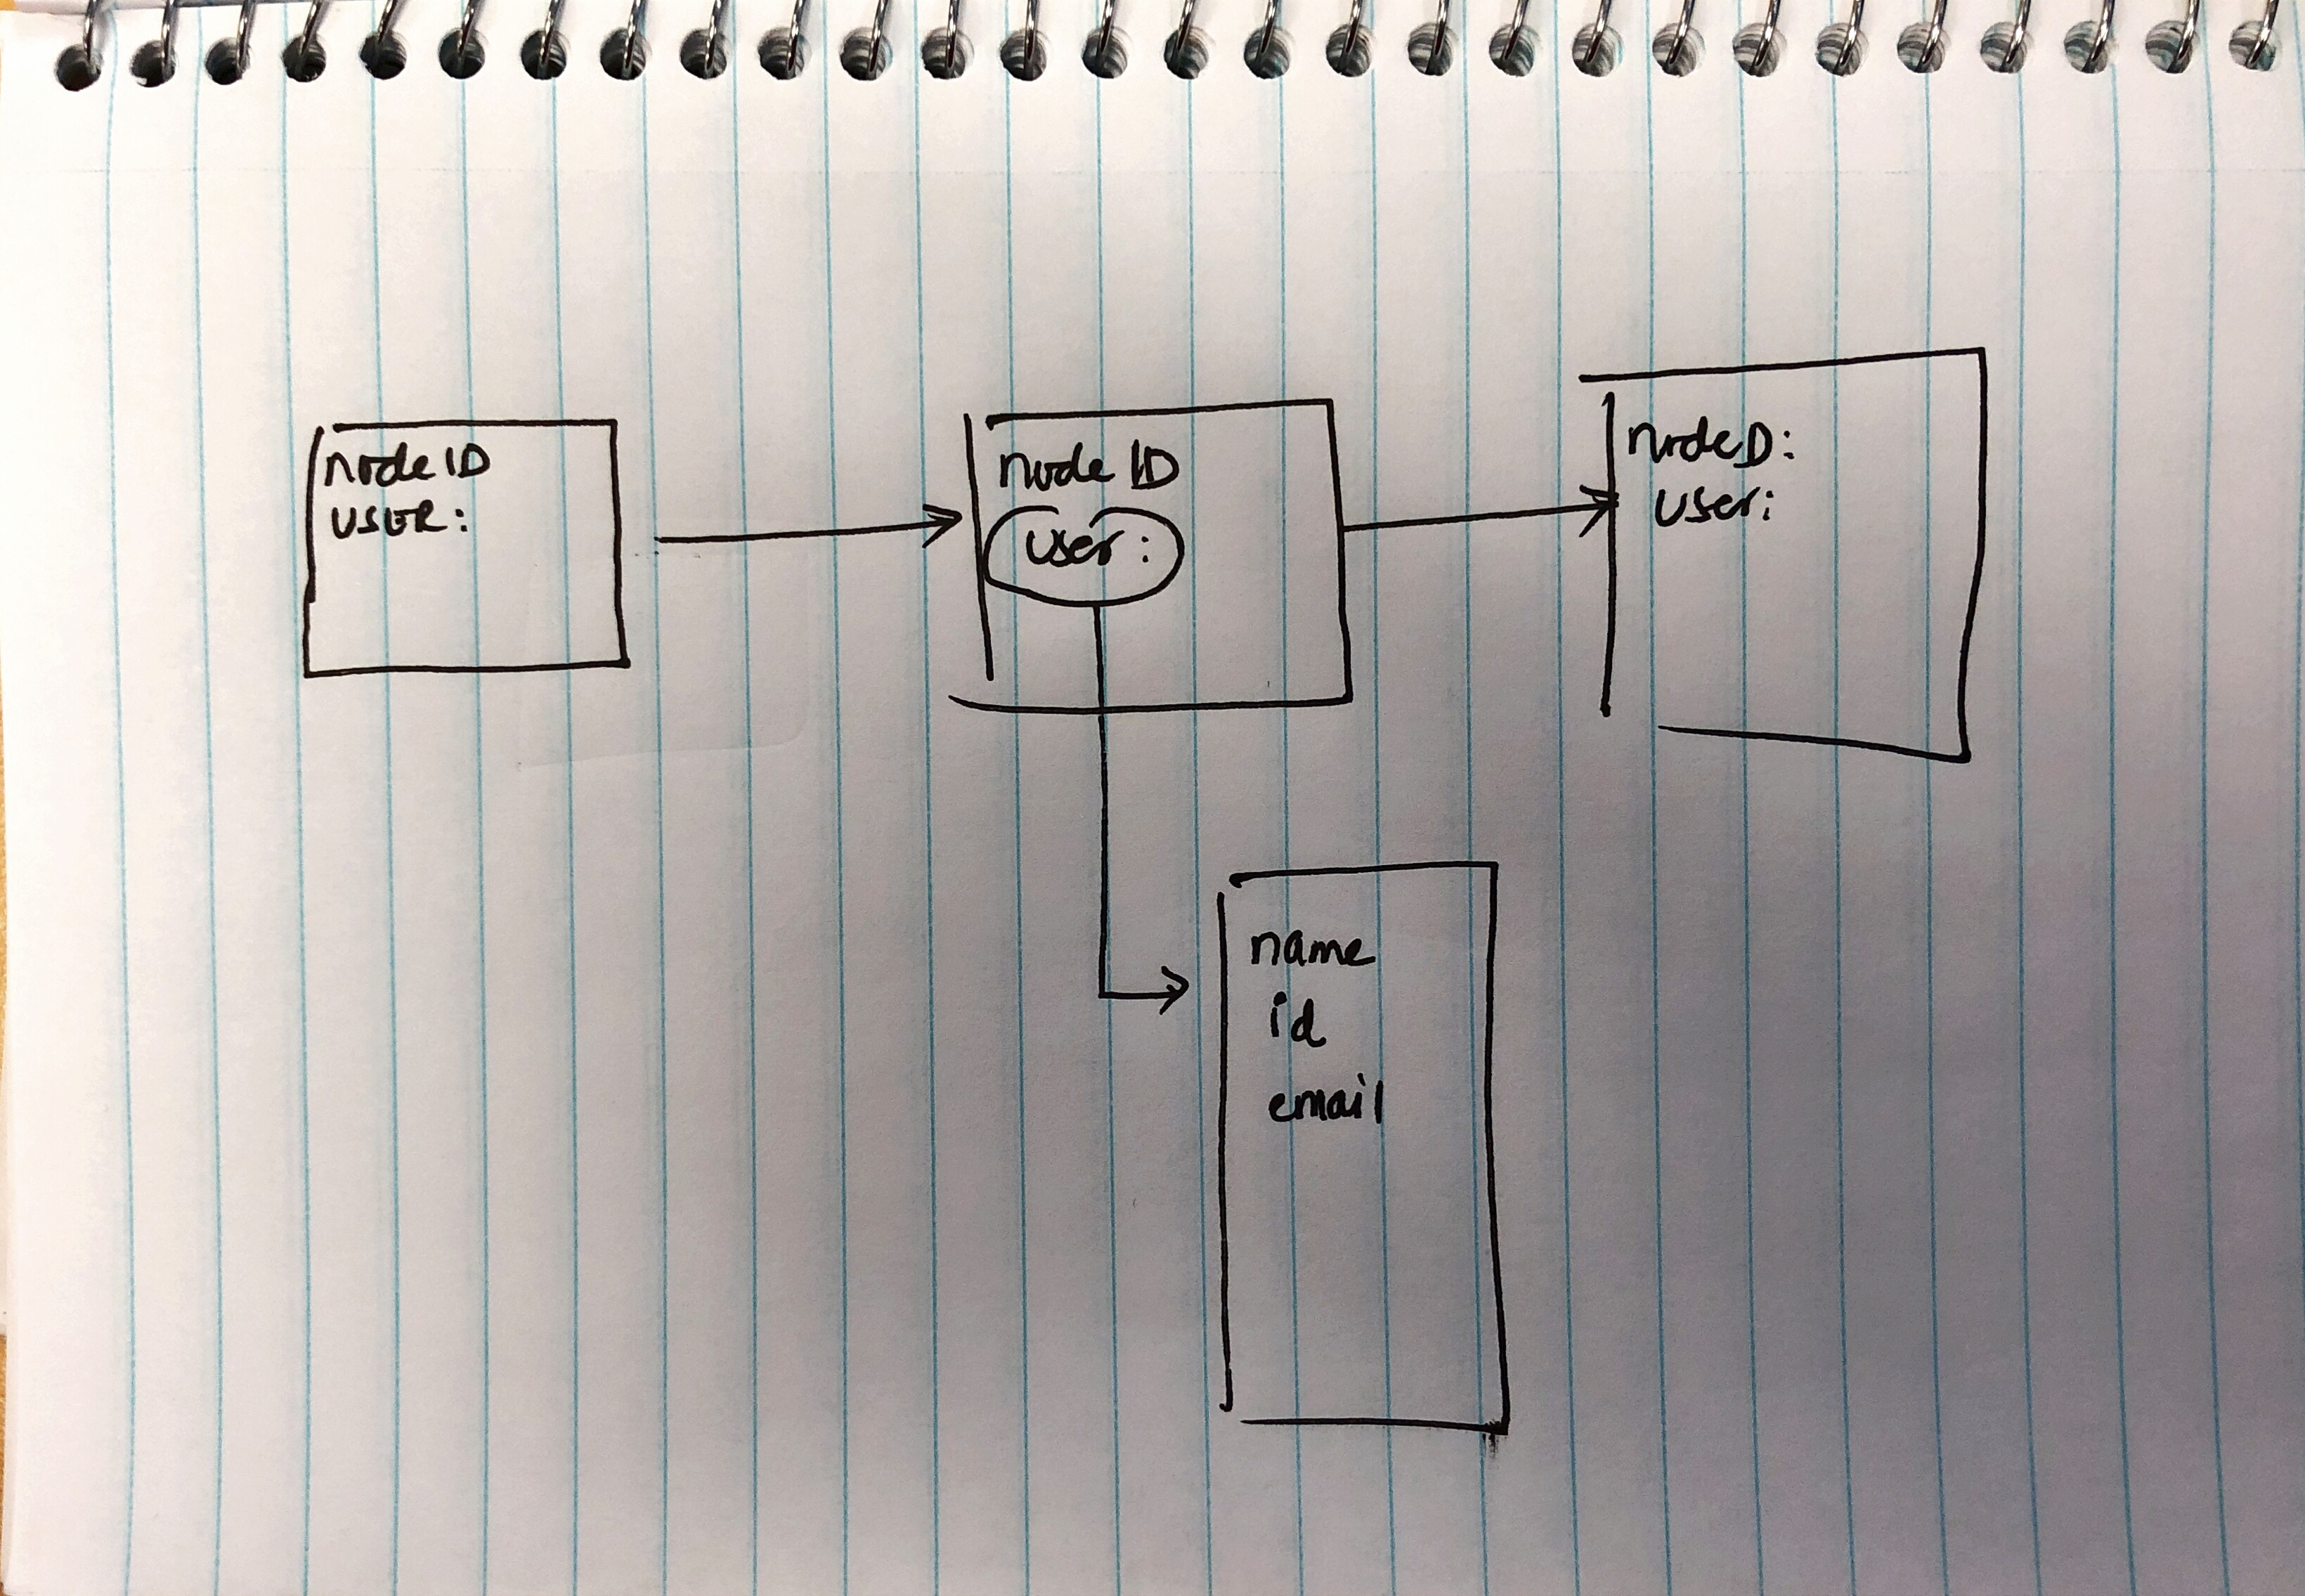 node ID
USER:
node ID
user:
nodeD:
user:
name
id
email